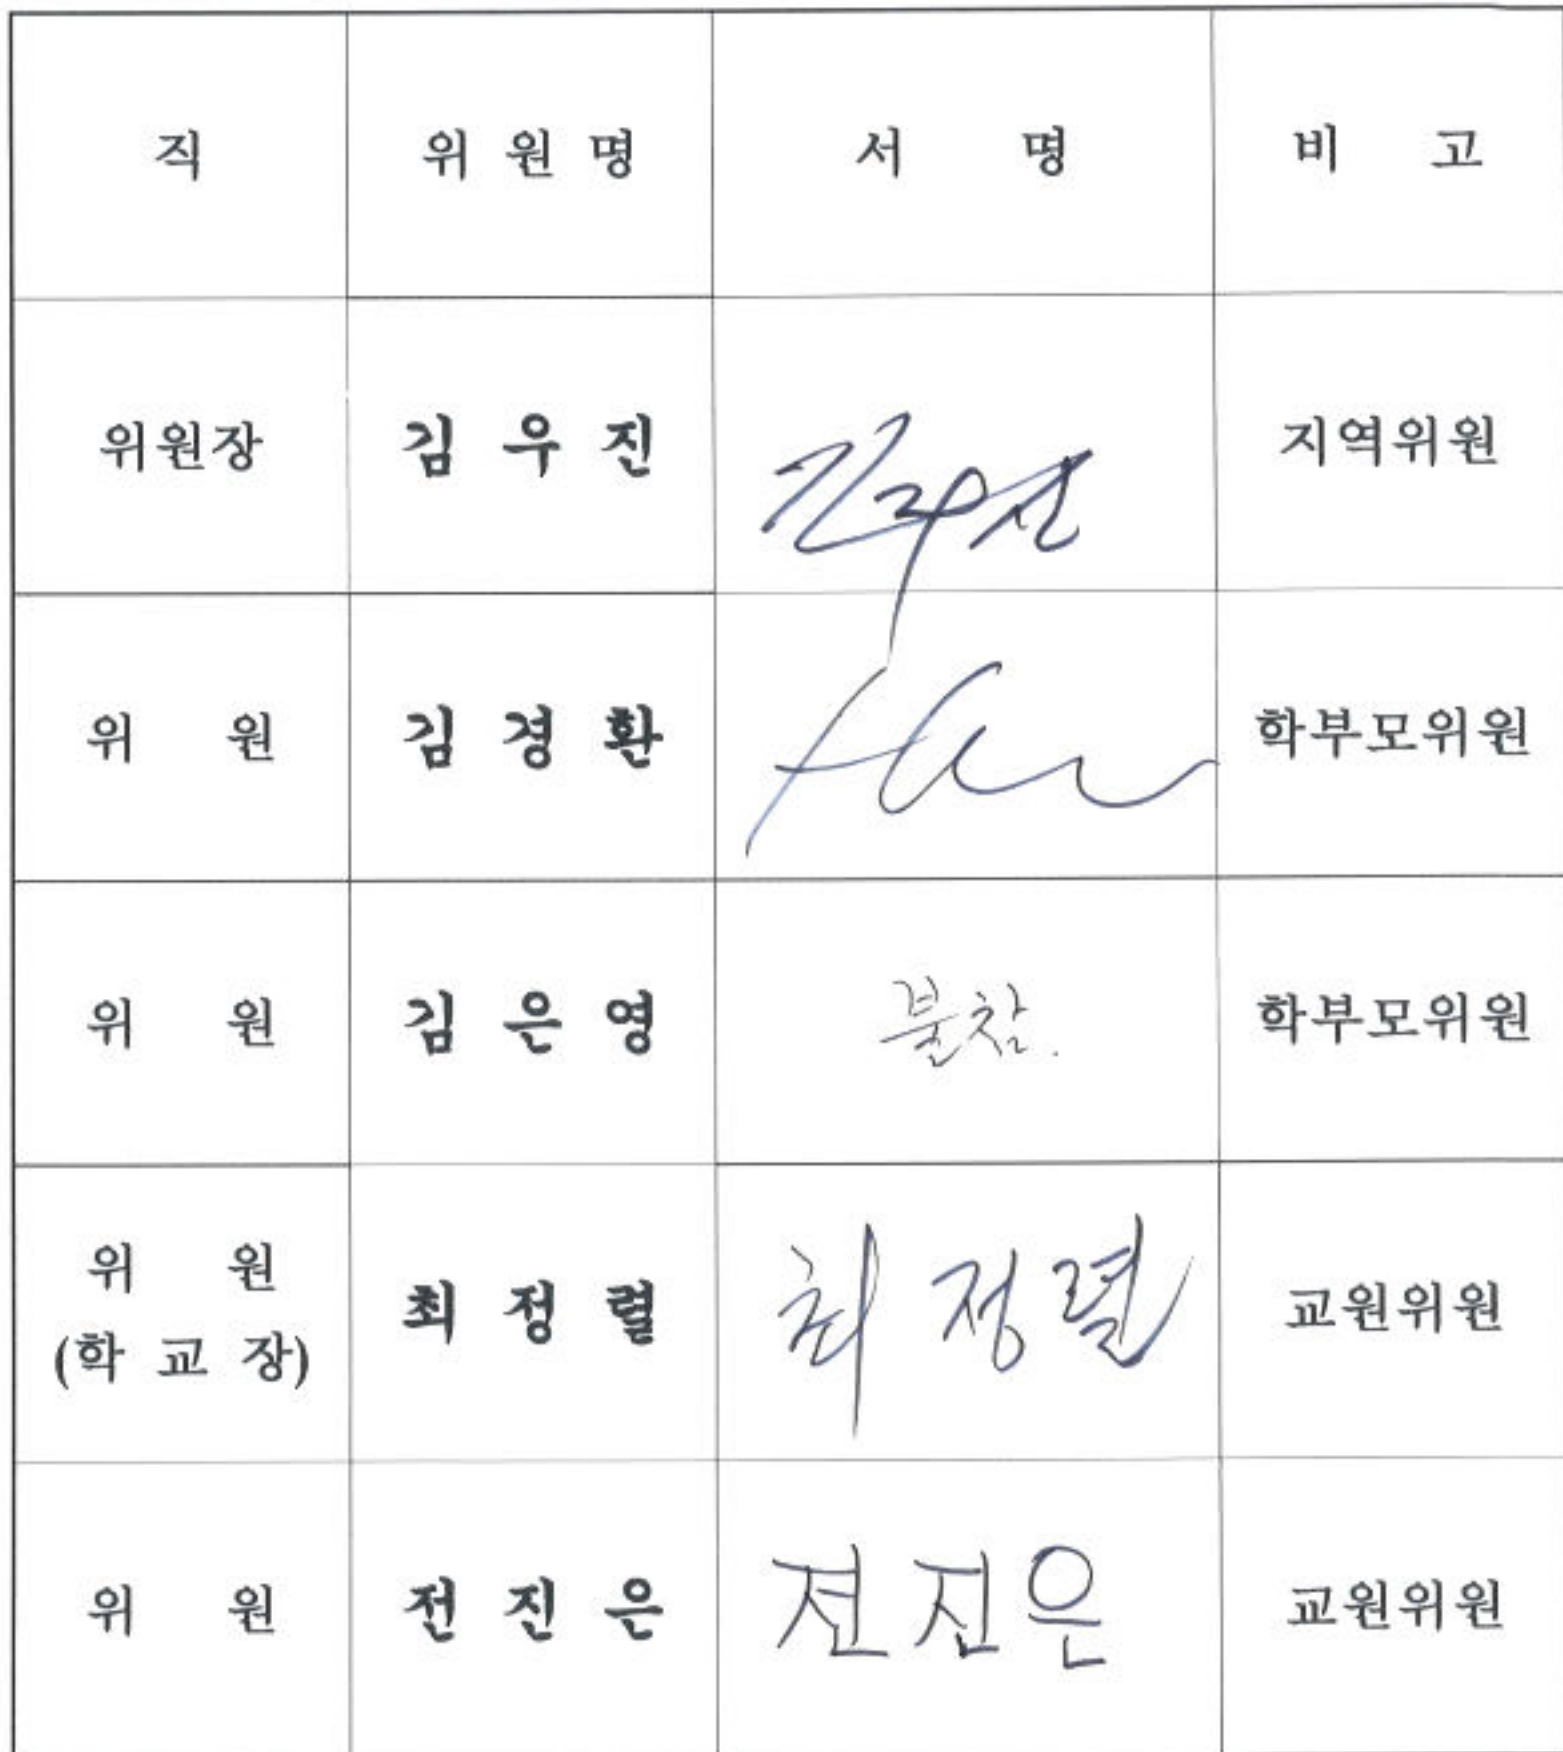 직 위 원 명 서 명 비 고
위원장 김 우 진 김우진 지역위원
위 원 김 경 환 학부모위원
위 원 김 은 영 불참. 학부모위원
위 원
(학 교 장) 최 정 렬 최 정 렬 교원위원
위 원 전 진 은 전 진 은 교원위원